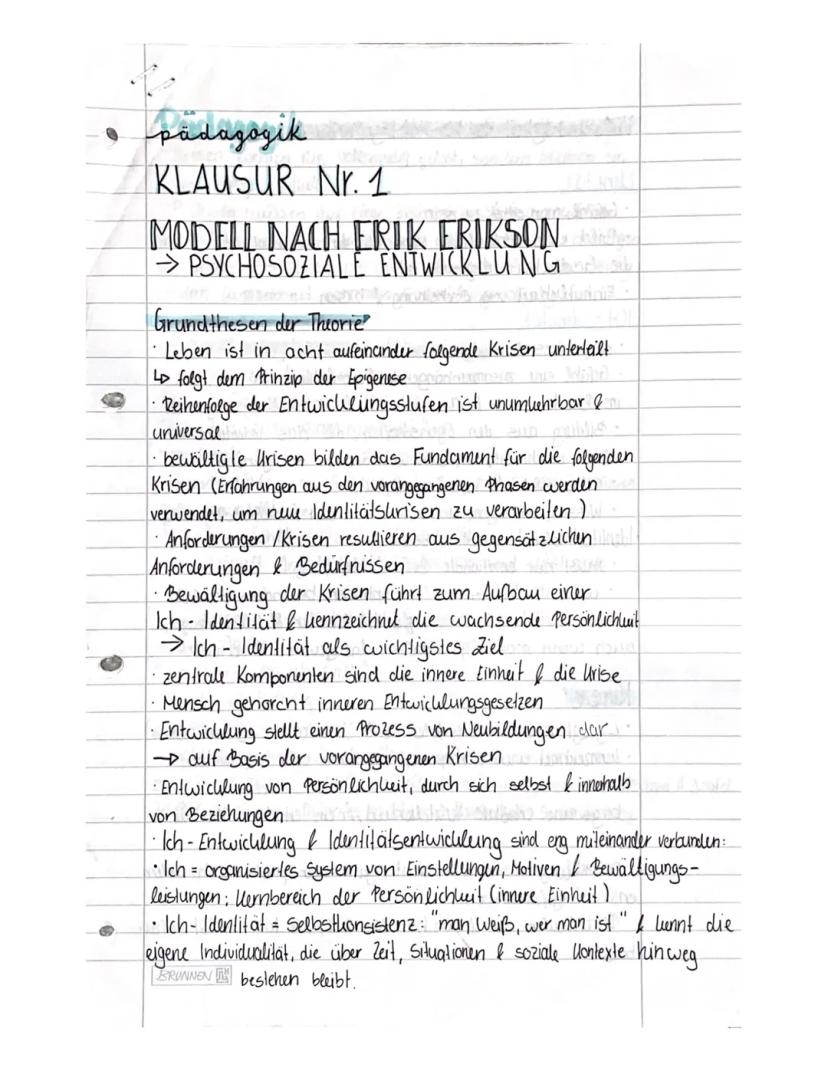 pädagogik
KLAUSUR Nr. 1
MODELL NACH ERIK ERIKSON
→ PSYCHOSOZIALE ENTWICKLUNG
Grundthesen der Theorie
· Leben ist in acht aufeinander folgende Krisen unterteilt
↳ folgt dem Prinzip der Epigenese
· Reihenfolge der Entwicklungsstufen ist unumkehrbar &
universal
· bewältigte Krisen bilden das Fundament für die folgenden
Krisen (Erfahrungen aus den vorangegangenen Phasen werden
verwendet, um neue Identitätskrisen zu verarbeiten)
· Anforderungen / Krisen resultieren aus gegensätzlichen
Anforderungen & Bedürfnissen
· Bewältigung der Krisen führt zum Aufbau einer
Ich - Identität & kennzeichnet die wachsende Persönlichkeit
→ Ich - Identität als wichtigstes Ziel
· zentrale Komponenten sind die innere Einheit & die Krise
· Mensch gehorcht inneren Entwicklungsgesetzen
· Entwicklung stellt einen Prozess von Neubildungen dar
→ auf Basis der vorangegangenen Krisen
· Entwicklung von Persönlichkeit, durch sich selbst & innerhalb
von Beziehungen
· Ich - Entwicklung & Identitätsentwicklung sind eng miteinander verbunden:
· Ich = organisiertes System von Einstellungen, Motiven & Bewältigungs-
leistungen; Kernbereich der Persönlichkeit (innere Einheit)
· Ich - Identität = Selbstkonsistenz: "man weiß, wer man ist" & kennt die
eigene Individualität, die über Zeit, Situationen & soziale Kontexte hinweg
BRUNNEN bestehen bleibt.